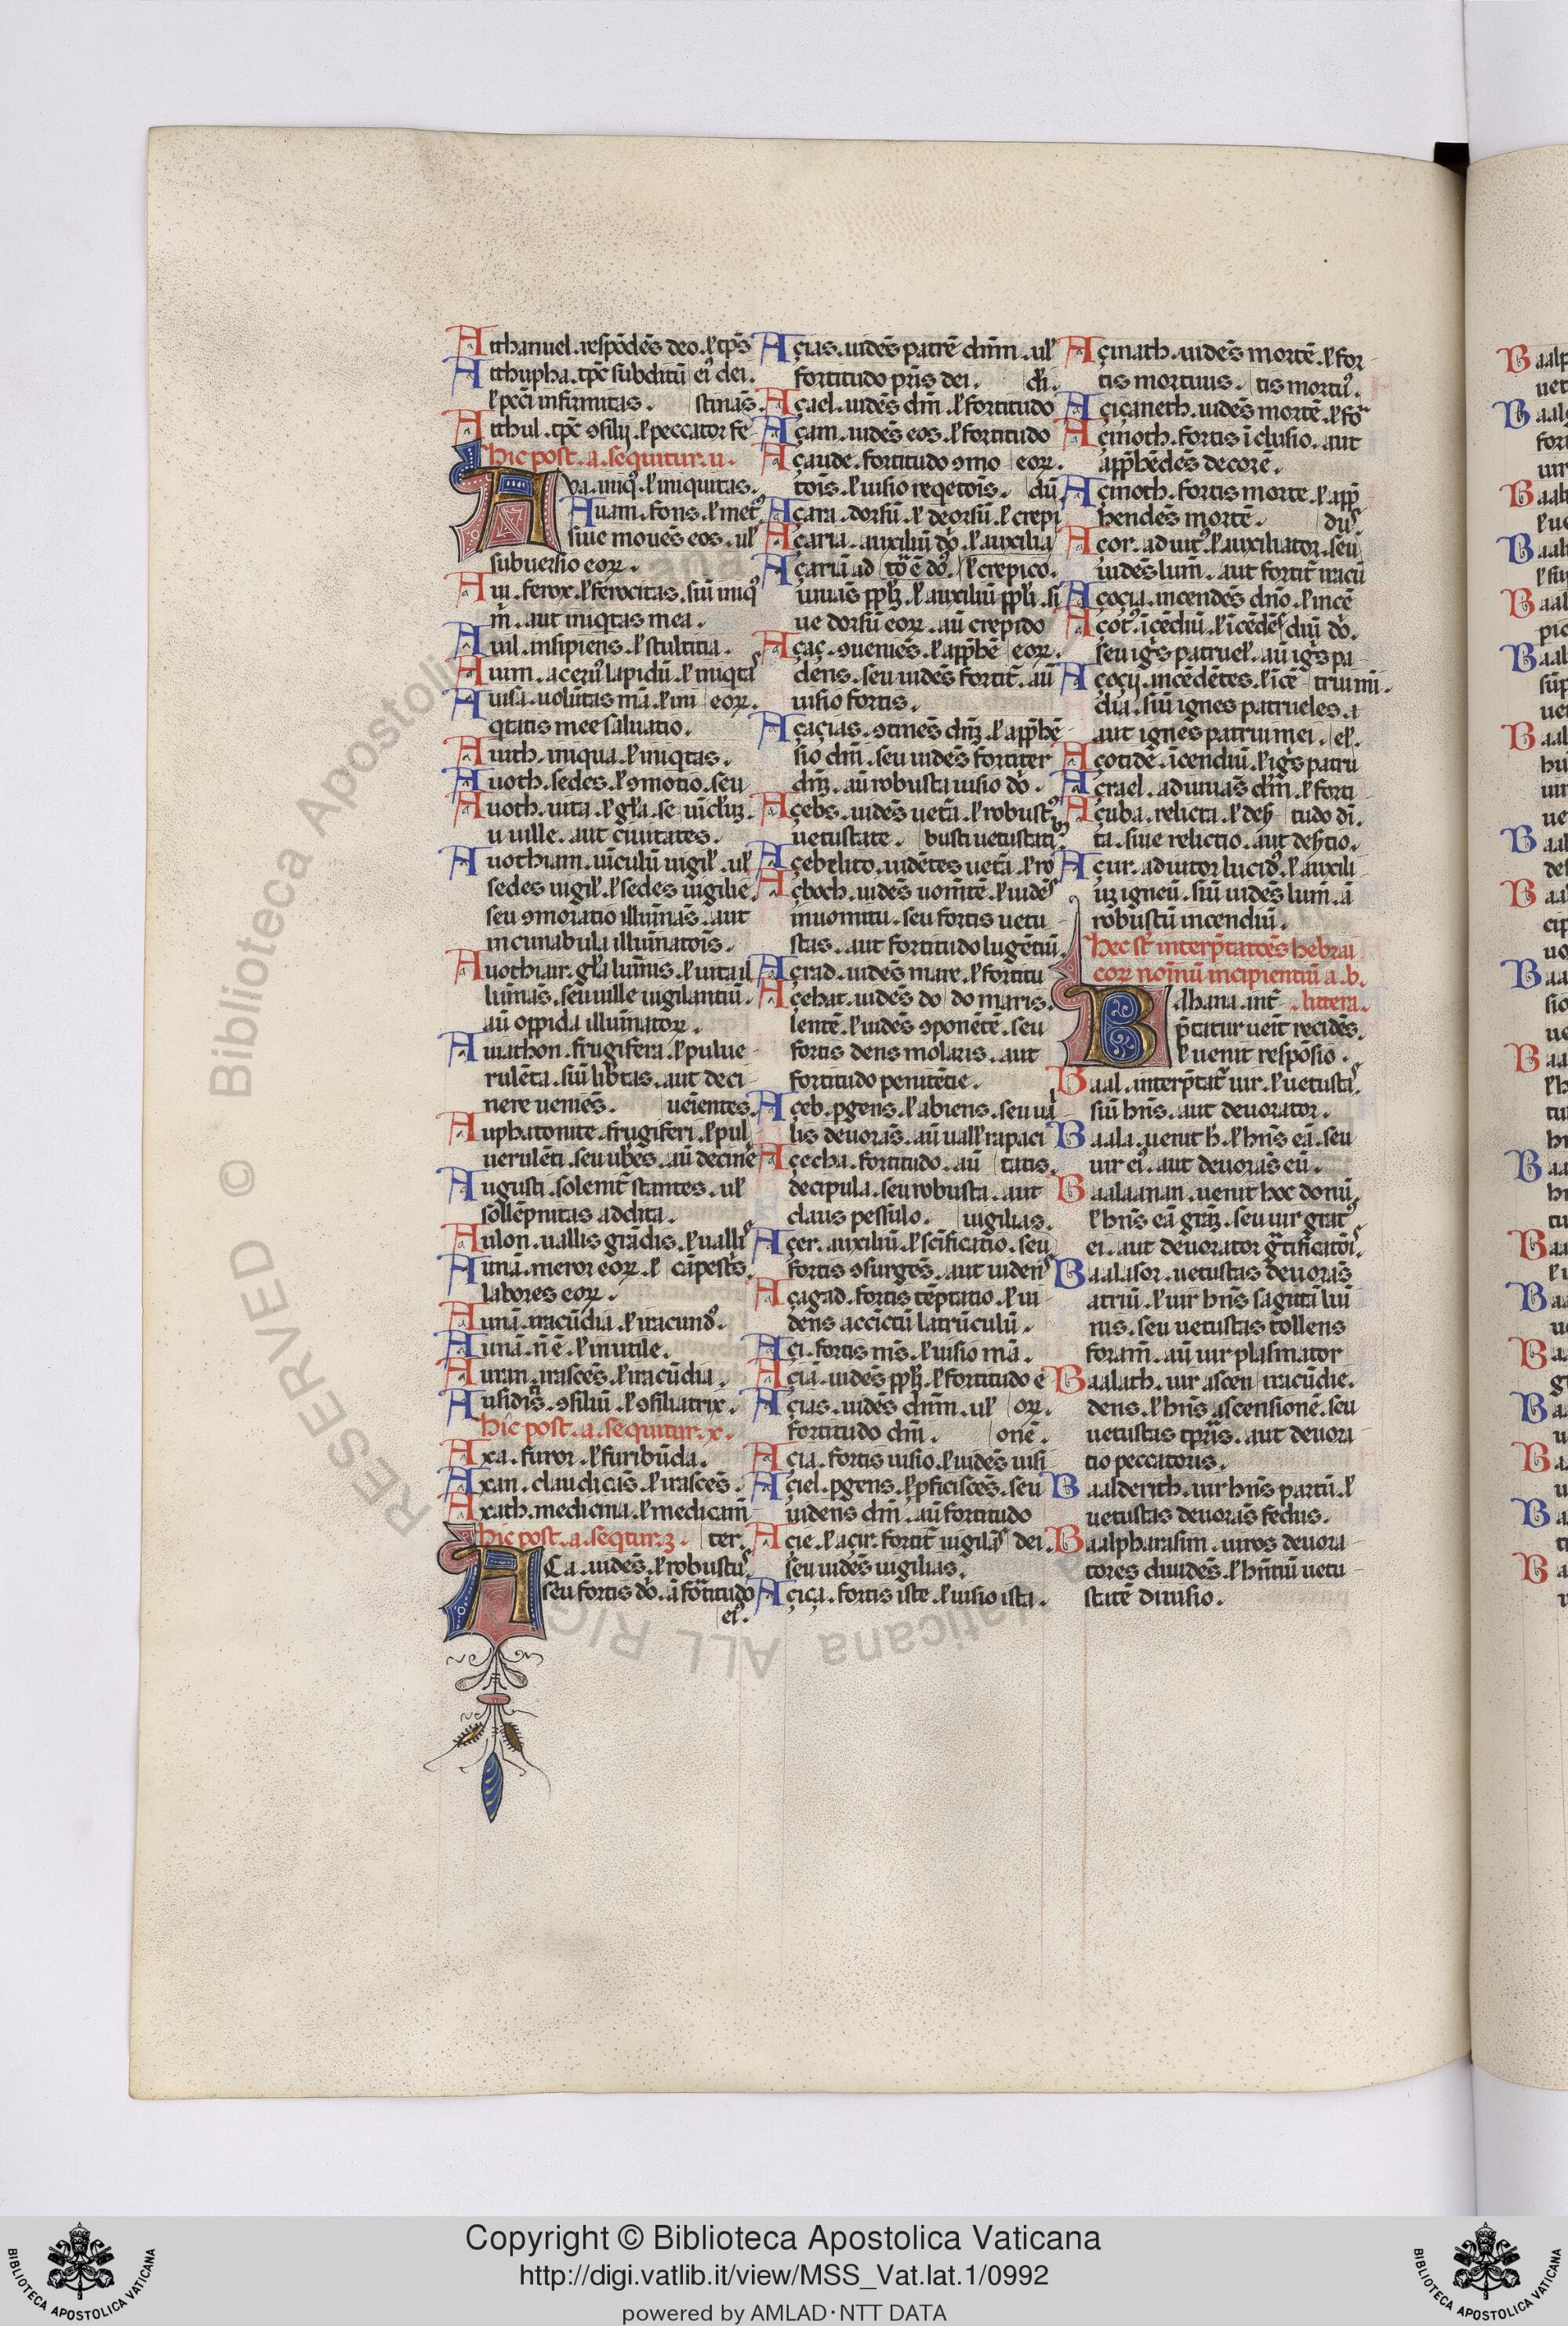 Atthanuel. respōdēs deo. ł tp̄s
Atthupha. tp̄c subditū eiꝰ dei.
ł pcc̄i infirmitas. stinās.
Atthul. tp̄c ꝯsilij. ł peccator fe
hic post. a. sequitur. u.
Ava. iniqꝰ. ł iniquitas.
Auam. fons. ł metꝰ
siue mouēs eos. ul̓
subuersio eoꝝ.
Aui. ferox. ł ferocitas. siū iniqꝰ
m̄. aut iniqtas mea.
Auil. insipiens. ł stultitia.
Auim. aceruꝰ lapidū. ł iniqtas
Auisa. uolūtas mā. ł ini eoꝝ.
qtatis mee saluatio.
Auith. iniqua. ł iniqtas.
Auoth. sedes. ł ꝯmotio. seu
Auoth. uita. ł gl̄a. se
u uille. aut ciuitates.
Auothiam. uīculū uigil̓. ul̓
sedes uigil̓. ł sedes uigilie
seu ꝯmoratio illuīnās. aut
incunabula illuīnatoīs.
Auothiair. gl̄a lumīs. ł uita il
lumīas. seu uille uigilantiū.
aū oppida illuīnatoꝝ.
Auiathon. frugifera. ł pulue
rulēta. siū lib̄tas. aut deci
nere ueniēs. ueīentes.
Auphatonite. frugiferi. ł pul
uerulēti. seu ub̄es. aū decinē
Augusti. solenit̄ stantes. ul̓
sollēpnitas addita.
Aulon. uallis grādis. ł uallis
Aunā. meror eoꝝ. ł cāpestr̄s.
labores eoꝝ.
Aunā. iracūdia. ł iracundꝰ.
Aunā. n̄ ē. ł inutile.
Auran. irascēs. ł iracūdia.
Ausidis. ꝯsiliū. ł ꝯsiliatrix.
hic post. a. sequitur. x.
Axa. furor. ł furibūda.
Axan. claudicās. ł irascēs.
Axath. medicina. ł medicam̄
hic post. a. seqtur. z. ter.
ACa. uidēs. ł robustus
seu fortis do. ā fortitudo
eiꝰ.
Açias. uidēs patrē dn̄m. ul̓
fortitudo pr̄is dei. dn̄i.
Açael. uidēs dm̄. ł fortitudo
Açam. uidēs eos. ł fortitudo
Açaude. fortitudo ꝯmo eoꝝ.
toīs. ł uisio reqetoīs. dū
Açara. dorsū. ł deorsū. ł crepi
Açaria. auxiliū do. ł auxilia
Açariū ad ł crepico.
iuuās ppl̄z. ł auxiliū ppl̄i. si
ue dorsū eoꝝ. aū crepido
Açaç. ꝯueniēs. ł app̄hē eoꝝ.
dens. seu uidēs fortit̄. aū
uisio fortis.
Açaçias. ꝯtinēs dm̄z. ł app̄hē
sio dm̄. seu uidēs fortiter
dm̄z. aū robusta uisio do.
Açebs. uidēs uetā. ł robustꝰ
uetustate. busti uetustati
uidētes uetā. ł ro
Açboch. uidēs uomītē. ł uidēs
inuomitu. seu fortis uetu
stas. aut fortitudo lugētiū
Açrad. uidēs mare. ł fortitu
Açehat. uidēs do do maris.
lentē. ł uidēs ꝯponētē. seu
fortis dens molaris. aut
fortitudo penitētie.
Açeb. pgens. ł abiens. seu ual
lis deuorās. aū uall̓ rapaci
Açecha. fortitudo. aū tatis.
decipula. seu robusta. aut
claus pessulo. uigilias.
Açer. auxiliū. ł sc̄ificatio. seu
fortis ꝯsurgēs. aut uidens
Açagad. fortis tēptatio. ł ui
dens accīctū latrūculū.
Açi. fortis m̄s. ł uisio mā.
Açiā. uidēs ppl̄z. ł fortitudo e
Açias. uidēs dn̄m. ul̓ oꝝ.
fortitudo dn̄i. onē.
Açia. fortis uisio. ł uidēs uisi
Açiel. pgens. ł pficiscēs. seu
uidens dm̄. aū fortitudo
Açie. ł açir. fortit̄ uigilās dei.
seu uidēs uigilias.
Açiça. fortis iste. ł uisio ista.
Açmath. uidēs mortē. ł for
tis mortuus. tis mortuꝰ.
Açiçaneth. uidēs mortē. ł for
Açmoth. fortis ī clusio. aut
app̄hēdēs decorē.
Açmoth. fortis morte. ł app̄
hendēs mortē.
Açor. adiutꝰ. ł auxiliator. seu
uidēs lum̄. aut fortit̄ iracū
Açoçia. incendēs dn̄o. ł incē
Açotꝰ. icēdiū. ł icēdēs diū do.
seu ig̓s patruel̓. aū ig̓s pa
Açoçij. incēdētes. ł icē trui mī.
dia. siū ignes patrueles. a
aut ignes patrui mei. el̓.
Açotide. icendiū. ł ig̓s patru
Açrael. adiuuās dm̄. ł forti
Açuba. relicta. ł deh̄ tudo dī.
ta. siue relictio. aut deh̄tio.
Açur. adiutor lucidꝰ. ł auxili
uz igneū. siū uidēs lum̄. ā
robustū incendiū.
hec st̄ interp̄tatoēs hebrai
coꝝ noīnū incipientiū a. b.
BAlhana. int̄ littera.
p̄tatur ueīt recidēs.
ł uenit respōsio.
Baal. interp̄tat̄ uir. ł uetustas
siū hn̄s. aut deuorator.
Baala. uenit h̄. ł hn̄s eā. seu
uir eiꝰ. aut deuorās eū.
Baalaanan. uenit hoc donū
ł hn̄s eā grāz. seu uir gratꝰ
ei. aut deuorator gr̄tificatoīs.
Baalasor. uetustas deuorās
atriū. ł uir hn̄s sagittā luī
nis. seu uetustas tollens
foram̄. aū uir plasmator
Baalath. uir ascen iracūdie.
dens. ł hn̄s ascensionē. seu
uetustas tp̄ris. aut deuora
tio peccatoris.
Baalderith. uir hn̄s partū. ł
uetustas deuorās fedus.
Baalpharasim. uiros deuora
tores diuidēs. ł hn̄tiū uetu
statē diuisio.
© Biblioteca Apostolica Vaticana ALL RIGHTS RESERVED
Copyright © Biblioteca Apostolica Vaticana
http://digi.vatlib.it/view/MSS_Vat.lat.1/0992
powered by AMLAD·NTT DATA
BIBLIOTECA APOSTOLICA VATICANA
BIBLIOTECA APOSTOLICA VATICANA